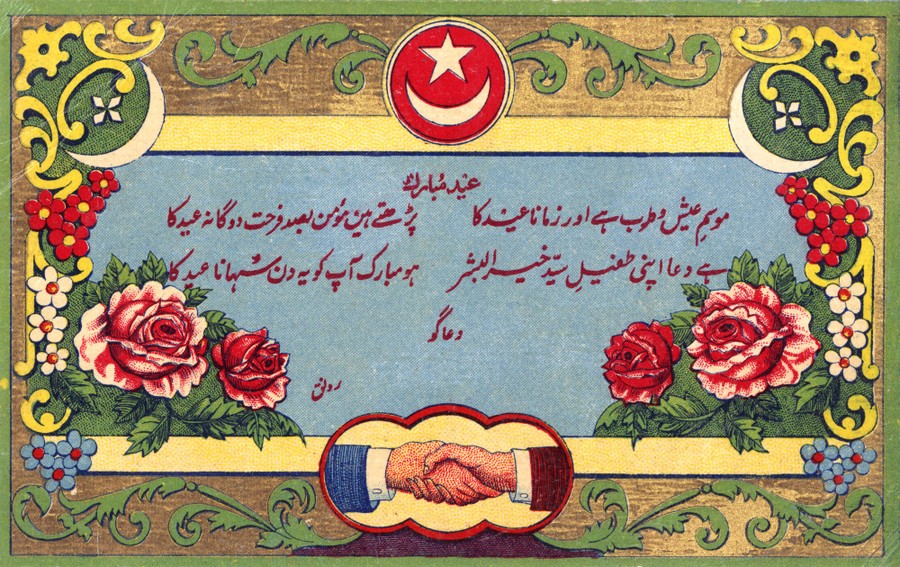 عید مبارک
موسمِ عیش و طرب ہے اور زمانا عید کا پڑھتے ہین مؤمن بصد فرحت دوگانہ عید کا
ہے دعا اپنی طفیلِ سیّد خیر البشر ہو مبارک آپ کو یہ دن سُہانا عید کا
دعاگو
رونق